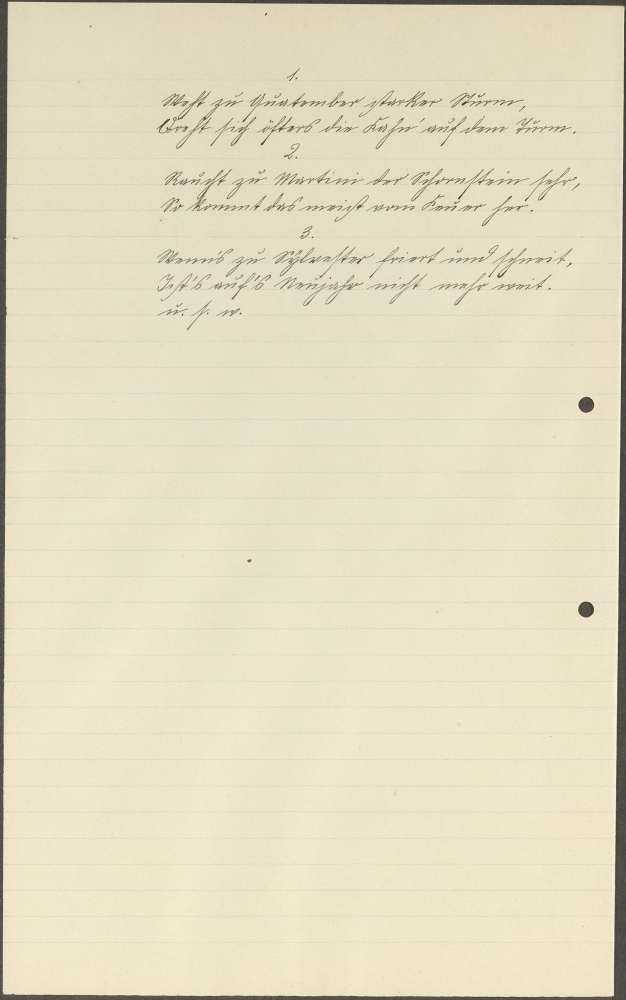 1.
Weht zu Quatember starker Sturm,
Dreht sich öfters die Fahn' auf dem Turm.
2.
Raucht zu Martini der Schornstein sehr,
So kommt das meist vom Feuer her.
3.
Wenn's zu Sylvester friert und schneit,
Ist's auf's Neujahr nicht mehr weit.
u. s. w.